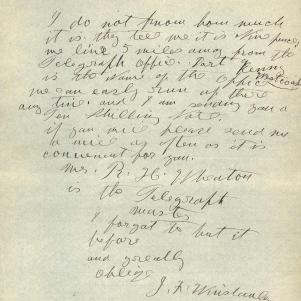 I do not know how much
it is. they tell me it is nine pence
me line 5 miles away from the
Telegraph Office. Port Kenny
is the name of the Office
we can easly run up there
any time. and I am sending you a
Ten Shilling Note.
if you will please send me
a wire as often as it is
convenient for you.
Mrs. R. H. Wheaton
is the Telegraph
master
I forgot to put it
before
and greatly
oblige
J. F.